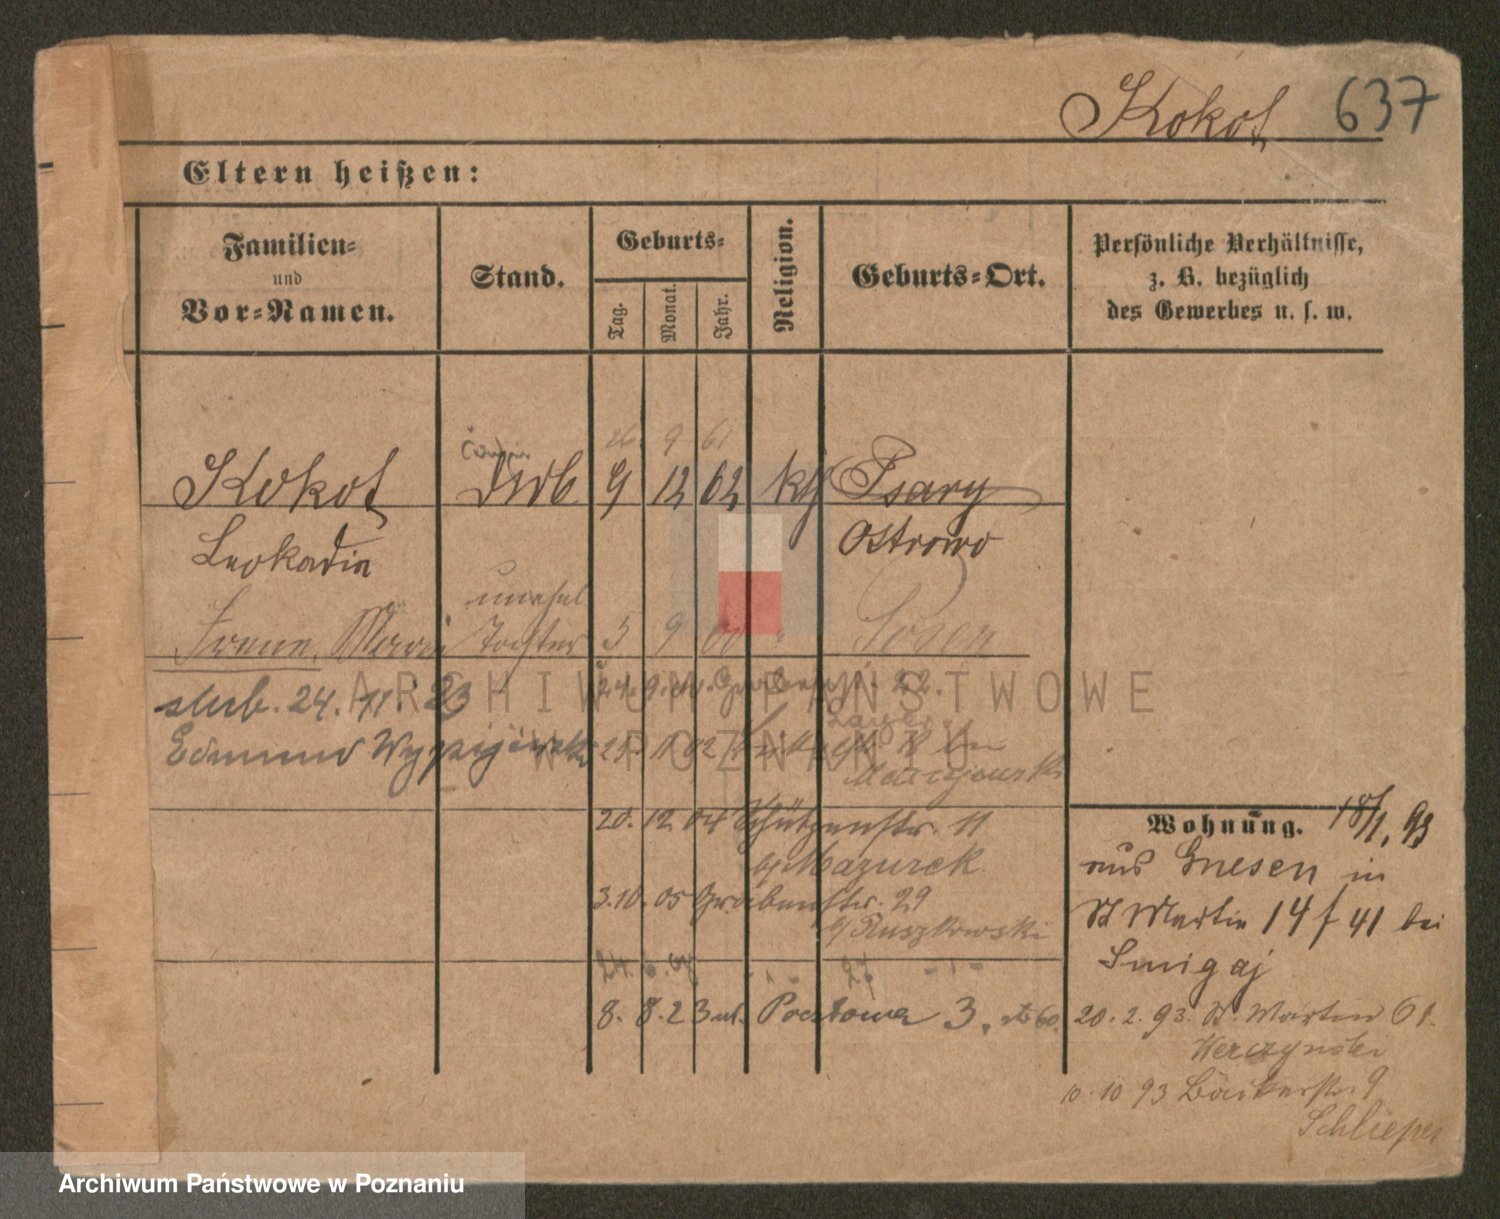 Kokot 637
Eltern heißen:
Familien=
und
Vor=Namen.
Stand.
Geburts=
Tag.
Monat.
Jahr.
Religion.
Geburts=Ort.
Persönliche Verhältnisse,
z. B. bezüglich
des Gewerbes u. s. w.
26 9 61
Kokot 9 12 62 kth Psary
Leokadia Ostrowo
unehel
Irene, Maria Tochter 3 9 00 Posen
slub. 24. 11. 23
Edmund
20. 12 04 Schützenstr. 11
b/ Mazurek
3. 10. 05 Grabenstr. 29
b/ Ruszkowski
24. 6. 07 27
8. 8. 23 ul. Pocztowa 3.
Wohnung. 18/1. 93
aus Gnesen in
St Martin 14 / 41 bei
Smigaj
20. 2. 93. St. Martin 61.
10. 10 93 Bäckerstr. 9
Schlieper
ARCHIWUM PAŃSTWOWE
W POZNANIU
Archiwum Państwowe w Poznaniu